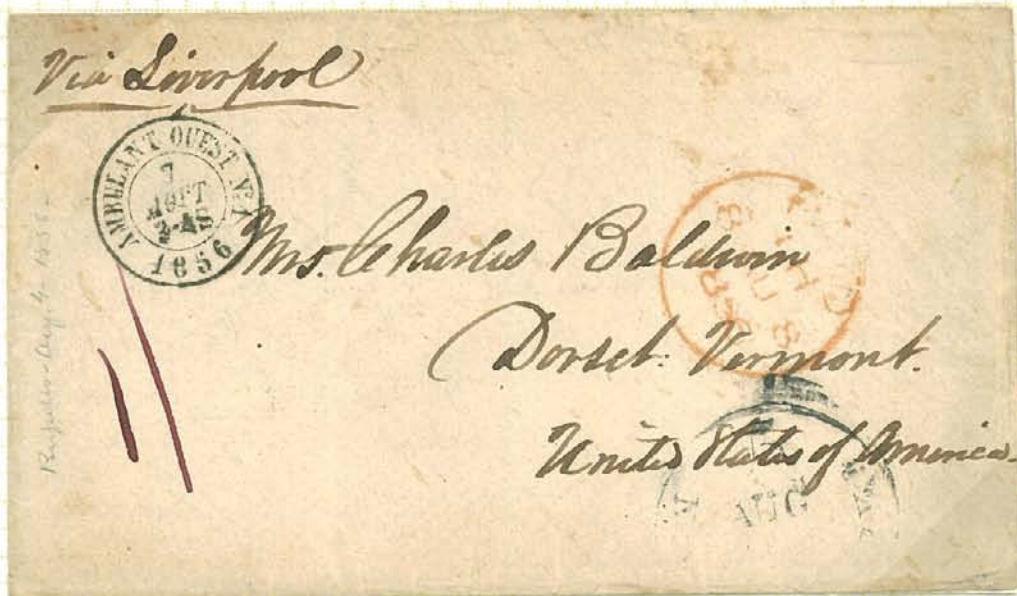 Via Liverpool
AMBULANT OUEST
7
AOUT
1856
Mrs. Charles Baldwin
Dorset. Vermont.
United States of America.
AUG